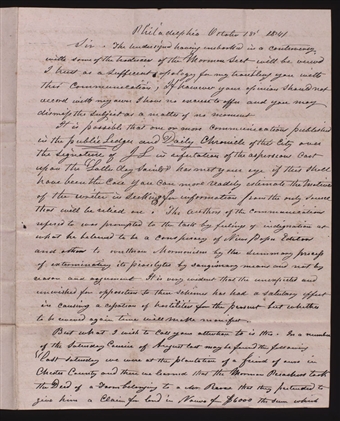 Philadelphia October 13th 1841
Sir. The undersigned having embarked in a controversy
with some of the traducers of the Mormon Sect will be viewed
I trust as a sufficient apology for my troubling you with
this Communication; If however your opinion should not
accord with my own I have no excuse to offer and you may
dismiss the subject as a matter of no moment
It is possible that one or more Communications published
in the public Ledger and Daily Chronicle of this City over
the signature of J. L in refutation of the aspersions Cast
upon the Latter day Saints has met your eye if this shall
have been the Case you can most readily estimate the motives
of the writer in seeking for information from the only source
that will be relied on. The author of the communications
referd to was prompted to the task by feelings of indignation at
what he believed to be a conspiracy of News Papa Editors
and others to overthrow Mormonism by the summary process
of exterminating its proselytes by sanguinary means and not by
reason and argument. It is very evident that the unexpected and
unwished for opposition to their schemes has had a salutary effect
in causing a cessation of hostilities for the present but whether
to be renewed again time will make manifest.
But what I wish to call your attention to is this. In a number
of the Saturday Courier of August last may be found the following
"Last Saturday we were at the plantation of a friend of ours in
Chester County and there we learned that the Mormon Preachers took
the Deed of a Farm belonging to a Mr Rosse that they pretended to
give him a Claim for land in Nauvoo for $6000 the sum which